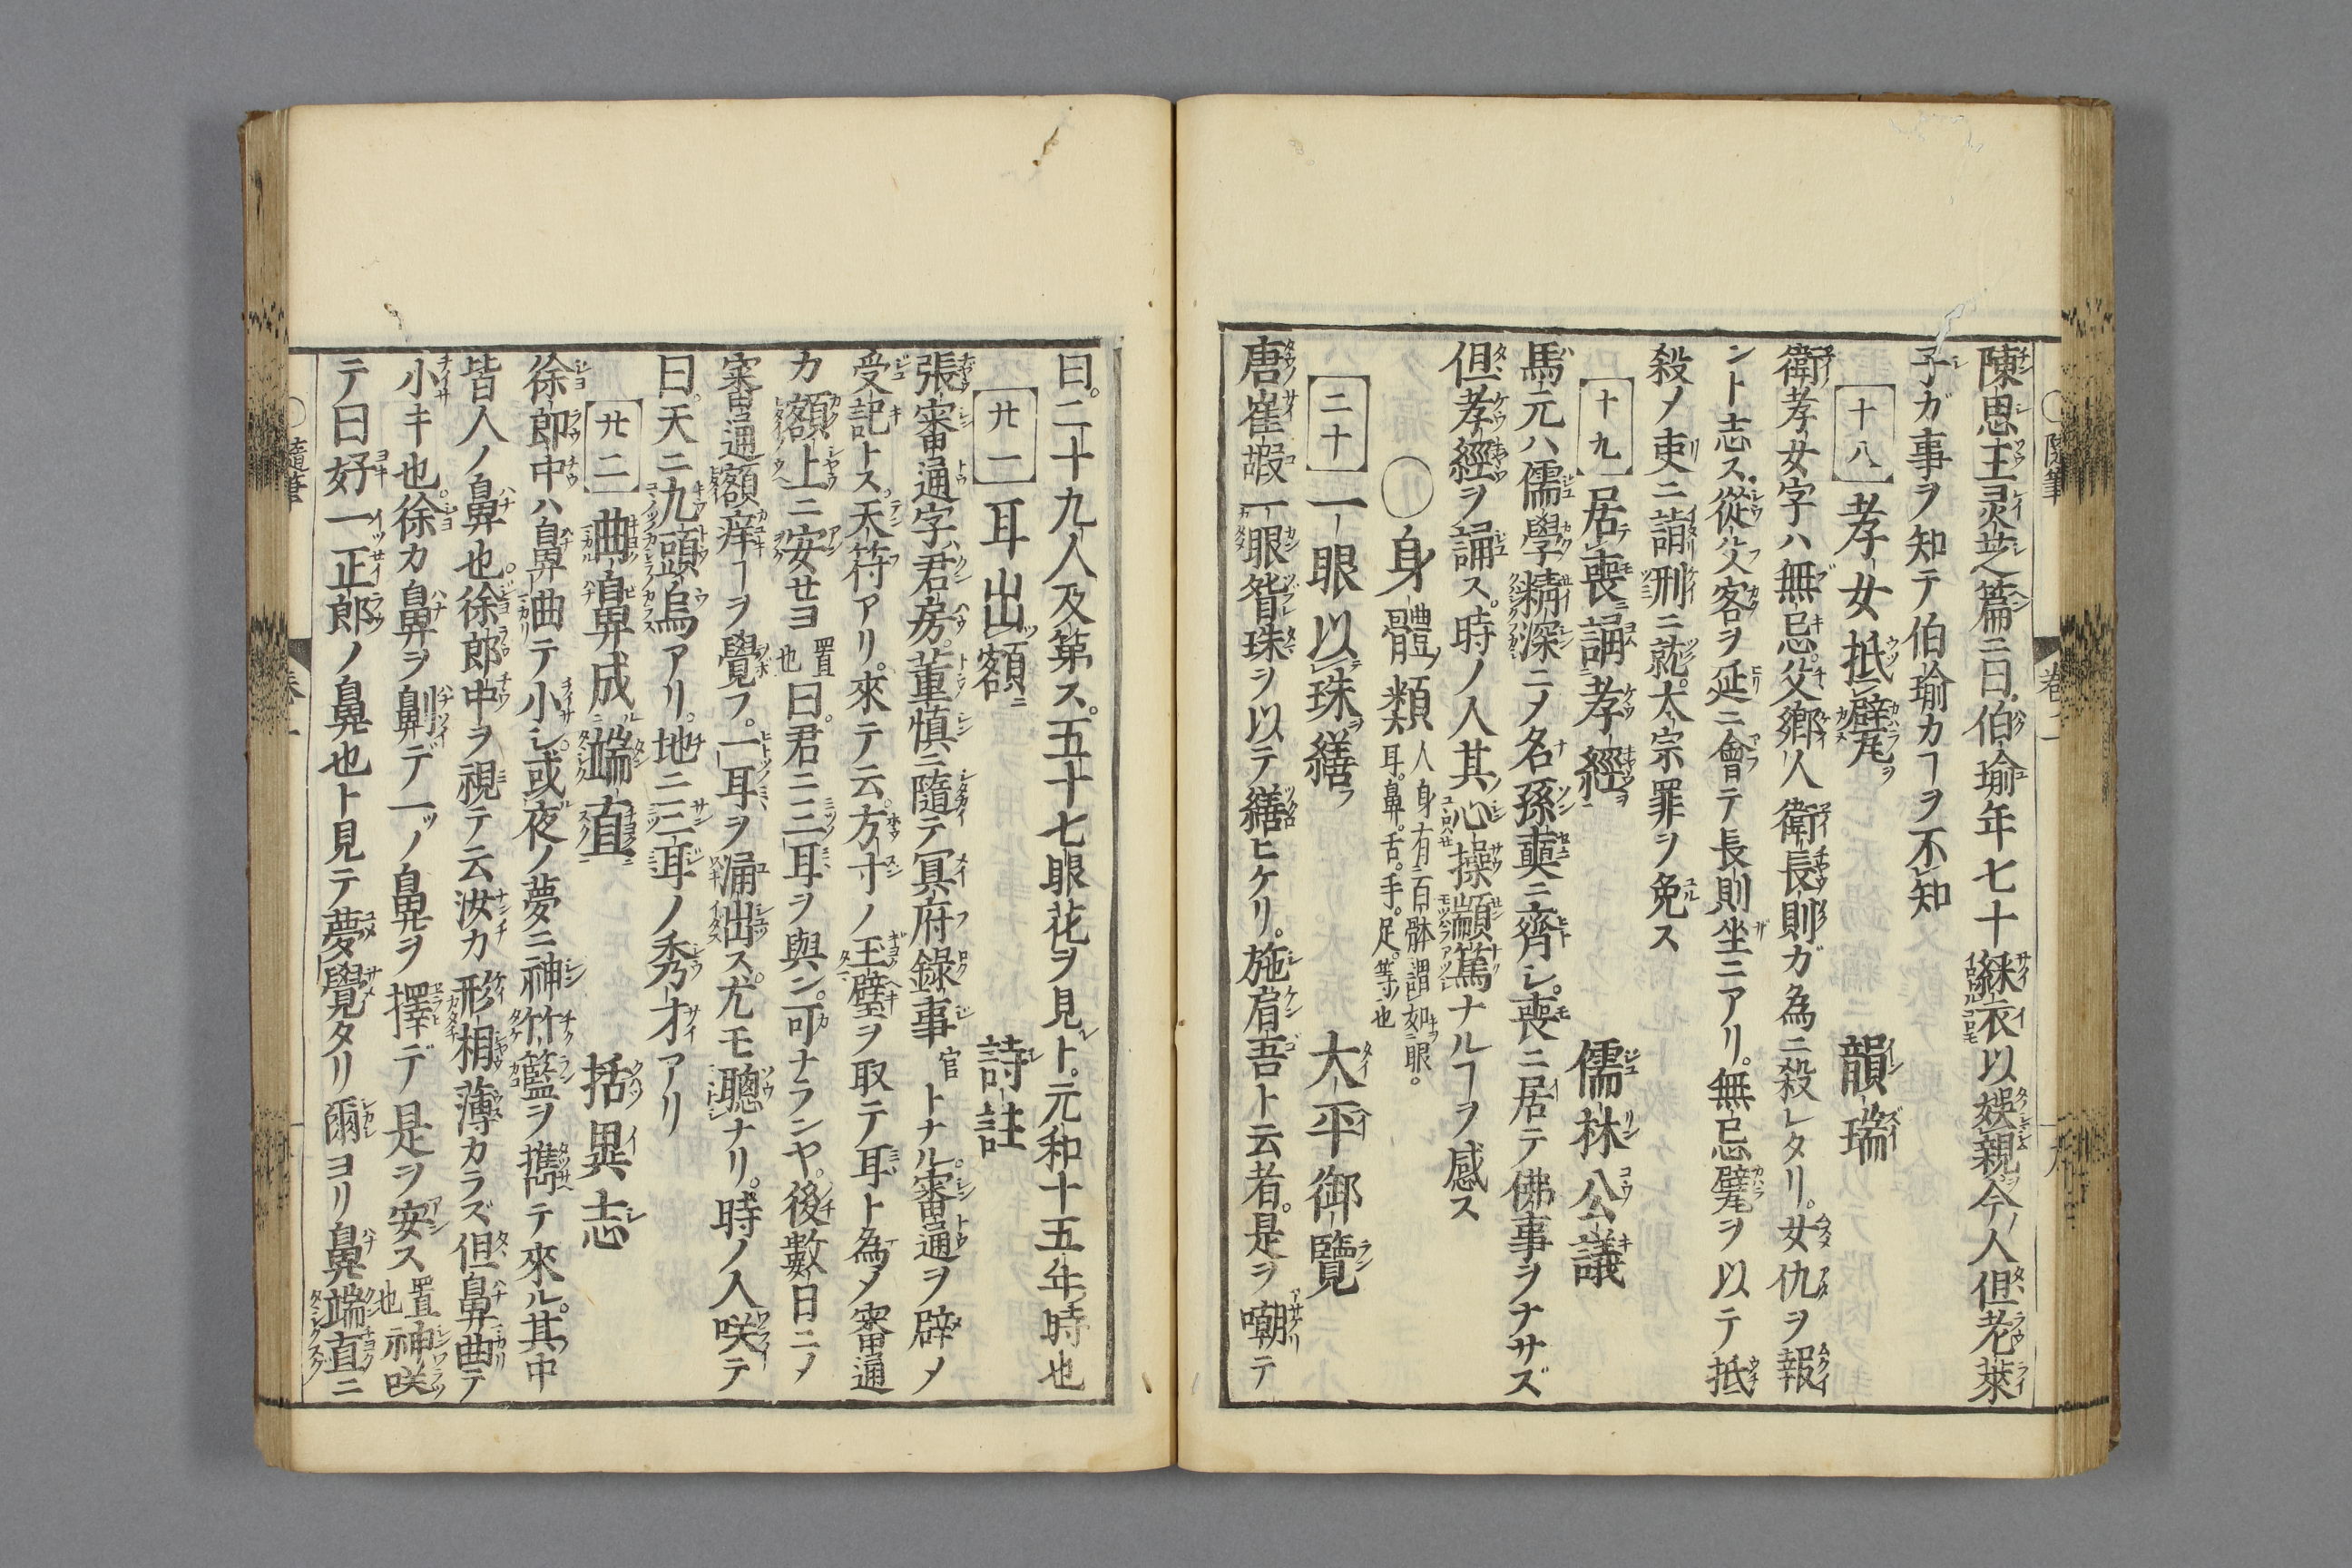 陳思王灵芝篇ニ曰伯瑜年七十綵衣以娯親今ノ人但老萊
子ガ事ヲ知テ伯瑜カヿヲ不知
十八 孝女抵甓 韻瑞
衛孝女字ハ無忌父鄕人衛長則ガ為ニ殺レタリ女仇ヲ報
ント志ス從父客ヲ延ニ會テ長則坐ニアリ無忌甓ヲ以テ抵
殺ノ吏ニ詣刑ニ就太宗罪ヲ免ス
十九 居喪誦孝經 儒林公議
馬元ハ儒學精深ニメ名孫奭ニ齊シ喪ニ居テ佛事ヲナサズ
但孝經ヲ誦ス時ノ人其心操顓篤ナルヿヲ感ス
〇身體類 人身有百骵謂如眼耳鼻舌手足等也
二十 一眼以珠繕 大平御覽
唐崔嘏一眼眢珠ヲ以テ繕ヒケリ施肩吾ト云者是ヲ嘲テ
〇隨筆 卷二
曰二十九人及第ス五十七眼花ヲ見ト元和十五年時也
廿一 耳出額 詩註
張審通字君房董慎ニ隨テ冥府錄事官トナル審通ヲ辟メ
受記トス天符アリ來テ云方寸ノ玉璧ヲ取テ耳ト為メ審通
カ額上ニ安セヨ置也曰君ニ三耳ヲ與ン可ナランヤ後數日ニメ
審通額痒ヿヲ覺フ一耳ヲ涌出ス尤モ聰ナリ時ノ人咲テ
曰天ニ九頭鳥アリ地ニ三耳ノ秀才アリ
廿二 曲鼻成端直 括異志
徐郎中ハ鼻曲テ小シ或夜ノ夢ニ神竹籃ヲ携テ來ル其中
皆人ノ鼻也徐郎中ヲ視テ云汝カ形相薄カラズ但鼻曲テ
小キ也徐カ鼻ヲ劓デ一ツノ鼻ヲ擇デ是ヲ安ス置也神咲
テ曰好一正郎ノ鼻也ト見テ夢覺タリ爾ヨリ鼻端直ニ
〇隨筆